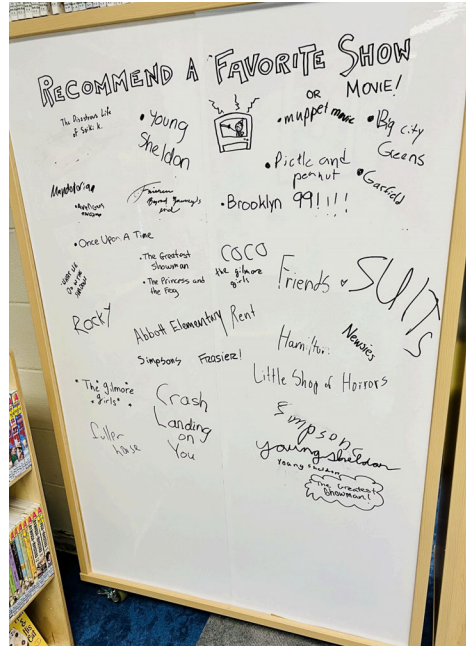 RECOMMEND A FAVORITE SHOW
OR
MOVIE!
The Disastrous Life
of Saiki K.
• Young
Sheldon
• muppet movie
• Big city
Greens
• Pickle and
peanut
• Garfield
Mandalorian
• American
Frieren
Beyond Journey's
end
• Brooklyn 99!!!!
• Once Upon A Time
• The Greatest
Showman
• The Princess and
the Frog
COCO
the gilmore
girls
Friends
SUITS
What We
Do in the
Shadows
Rocky
Abbott Elementary
Rent
Hamilton
Newsies
Simpsons
Frasier!
Little Shop of Horrors
• The gilmore
girls •
Crash
Landing
on
You
fuller
house
Simpsons
young sheldon
young sheldon
The Greatest
Showman!